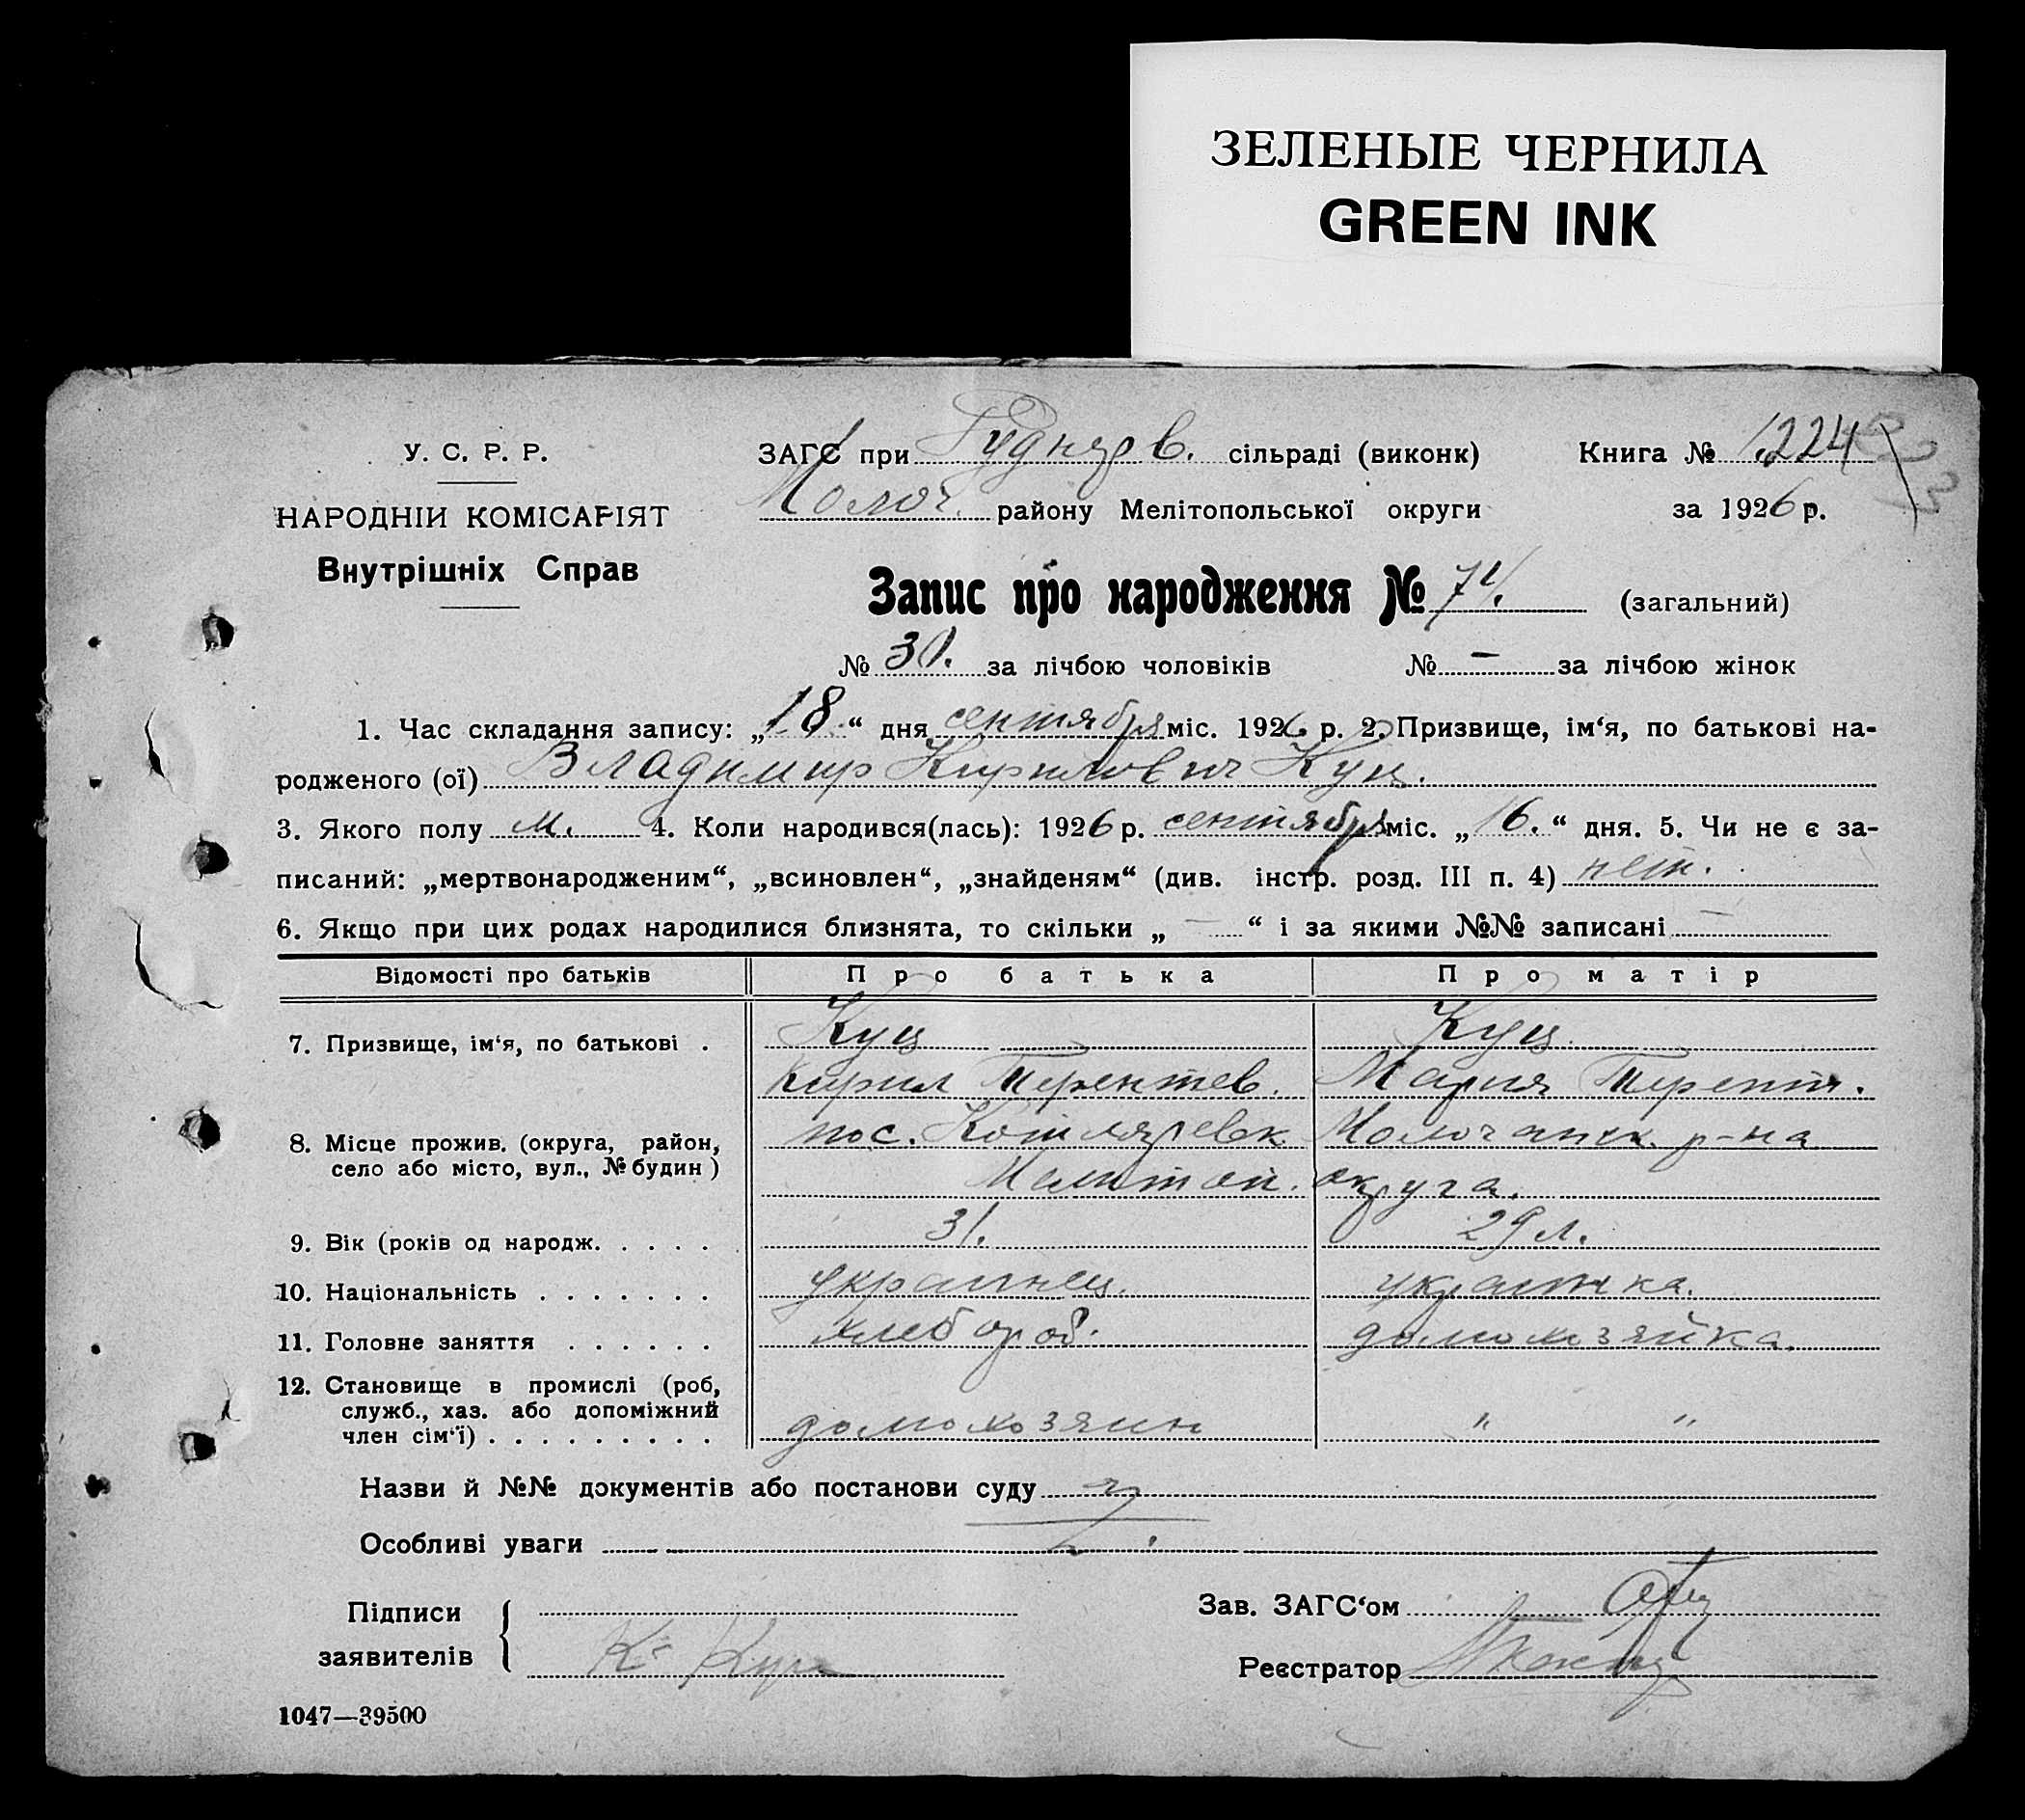 ЗЕЛЕНЫЕ ЧЕРНИЛА
GREEN INK
У. С. Р. Р.
НАРОДНІЙ КОМІСАРІЯТ
Внутрішніх Справ
ЗАГС при Рудняр в. сільраді (виконк)
Молоч. району Мелітопольської округи
Книга № 1224
за 1926 р.
Запис про народження № 74. (загальний)
№ 30. за лічбою чоловіків № — за лічбою жінок
1. Час складання запису: „18.“ дня сентября міс. 1926 р. 2. Призвище, ім‘я, по батькові на-
родженого (ої) Владимир Кирилович Куц.
3. Якого полу м. 4. Коли народився(лась): 1926 р. сентября міс. „16.“ дня. 5. Чи не є за-
писаний: „мертвонародженим“, „всиновлен“, „знайденям“ (див. інстр. розд. III п. 4) нет.
6. Якщо при цих родах народилися близнята, то скільки „ — “ і за якими №№ записані —
Відомості про батьків Про батька Про матір
7. Призвище, ім‘я, по батькові . Куц Куц
Кирил Терентев. Мария Терент.
8. Місце прожив. (округа, район, пос. Котляревск Молочанск. р-на
село або місто, вул., № будин) Мелитоп. округа.
9. Вік (років од народж. . . . . 31. 29 л.
10. Національність . . . . . . . украинец. украинка.
11. Головне заняття . . . . . . хлебороб. домохозяйка.
12. Становище в промислі (роб,
служб., хаз. або допоміжний
член сім‘ї) . . . . . . . . . домохозяин " "
Назви й №№ документів або постанови суду
Особливі уваги
Підписи
заявителів К. Куц
Зав. ЗАГС‘ом
Реєстратор
1047—39500